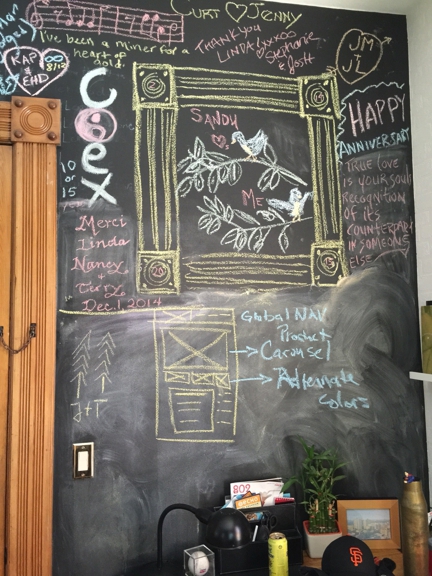 CURT ♡ JENNY
I've been a miner for a
heart of
gold.
THANK YOU
LINDA! xxoo
Stephanie
& Jost
RAP
&
EHD
JM
JL
Coex
10
or
15
SANDY
ME
HAPPY
ANNIVERSARY
TRUE LOVE
IS YOUR SOUL
RECOGNITION
OF IT'S
COUNTERPART
IN SOMEONE
ELSE
Merci
Linda
Nancy
+
Terry
Dec. 1, 2014
J+T
Global NAV
Product
Carousel
Alternate
Colors
SF